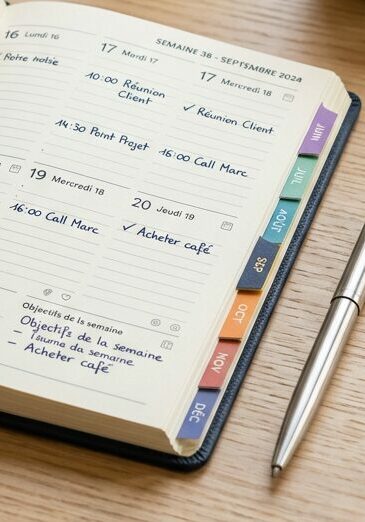 SEMAINE 38 - SEPTSMBRE 2024
16 Lundi 16
17 Mardi 17
10:00 Réunion
Client
14:30 Point Projet
17 Mercredi 18
✓ Réunion Client
16:00 Call Marc
19 Mercredi 18
16:00 Call Marc
20 Jeudi 19
✓ Acheter café
Objectifs de la semaine
Objectifs de la semaine
- da semaine
- Acheter café
JUIN
JUIL
AOÛT
SEP
OCT
NOV
DÉC